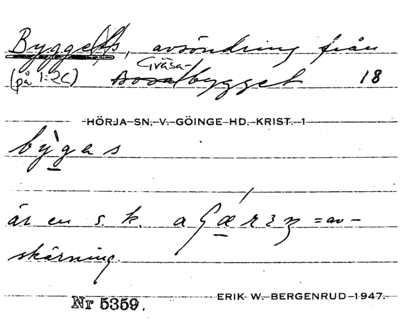 Byggets, avsöndring från
(på 1:2C) Gräsabygget 18
HÖRJA SN. V. GÖINGE HD. KRIST. 1
är en s.k. =av-
skärning.
Nr 5359. ERIK W. BERGENRUD 1947.